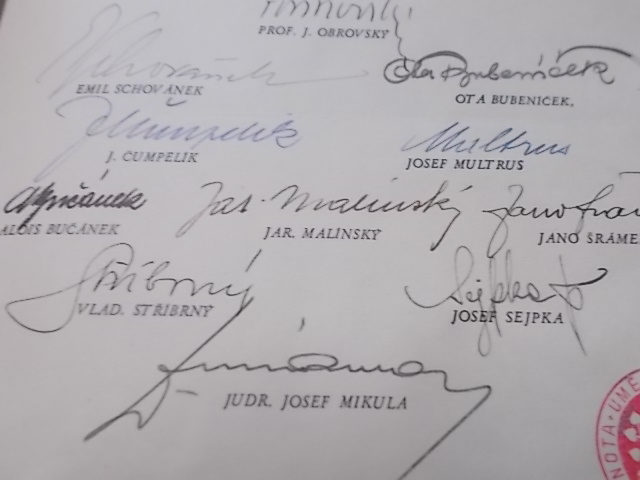 PROF. J. OBROVSKÝ
Schovánek
EMIL SCHOVÁNEK
Ota Bubeníček
OTA BUBENÍČEK,
JČumpelík
J. ČUMPELÍK
Multrus
JOSEF MULTRUS
ABučánek
ALOIS BUČÁNEK
Jar. Malínský
JAR. MALÍNSKÝ
Jano Šrá
JANO ŠRÁME
Stříbrný
VLAD. STŘÍBRNÝ
Sejpka J
JOSEF SEJPKA
JUDR. JOSEF MIKULA
NOTA · UMĚ